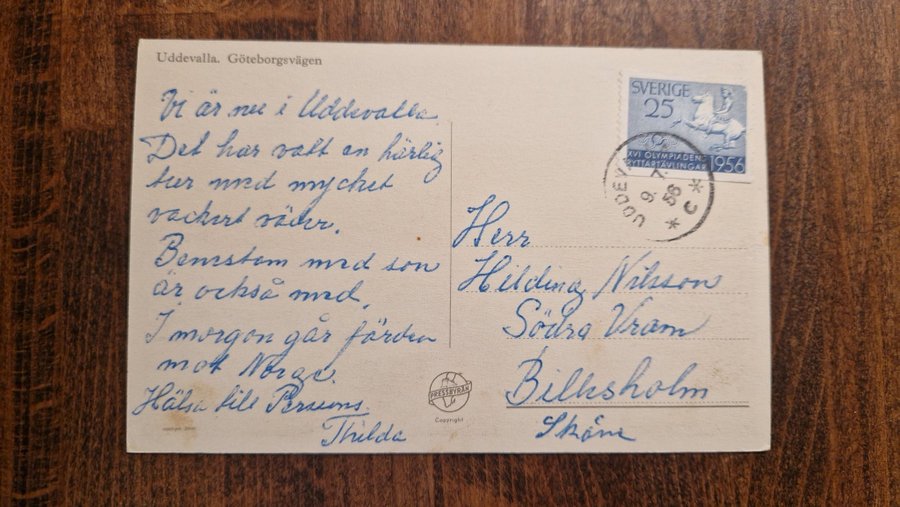 Uddevalla. Göteborgsvägen
Vi är nu i Uddevalla.
Det har vatt en härlig
tur med mycket
vackert väder.
med son
är också med.
I morgon går färden
mot Norge.
Hälsa till Perssons.
Thilda
PRESSBYRÅN
Copyright
SVERIGE
25
XVI OLYMPIADENS
RYTTARTÄVLINGAR
1956
9. 7.
56
* C *
Herr
Hilding Nilsson
Södra Vram
Billesholm
Skåne